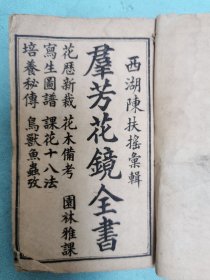 西湖陳扶搖彙輯
羣芳花鏡全書
園林雅課
花木備考
課花十八法
鳥獸魚蟲攷
花歷新裁
寫生圖譜
培養秘傳